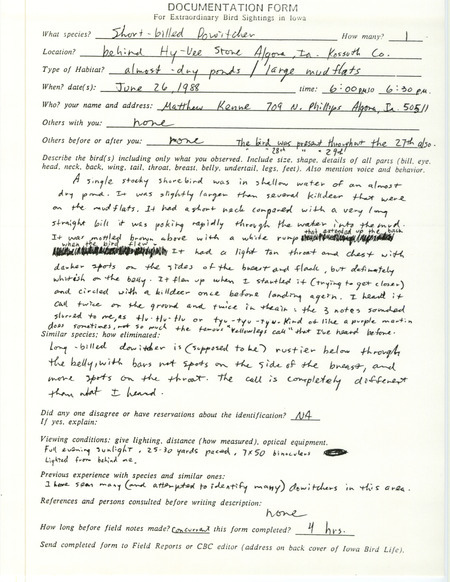 DOCUMENTATION FORM
For Extraordinary Bird Sightings in Iowa
What species? Short-billed Dowitcher How many? 1
Location? behind Hy-Vee Store Algona, Ia. Kossuth Co.
Type of Habitat? almost-dry ponds / large mudflats
When? date(s): June 26, 1988 time: 6:00 pm to 6:30 p.m.
Who? your name and address: Matthew Kenne 709 N. Phillips Algona, Ia 50511
Others with you: none
Others before or after you: none The bird was present throughout the 27th also.
" 28th " " 29th
Describe the bird(s) including only what you observed. Include size, shape, details of all parts (bill, eye,
head, neck, back, wing, tail, throat, breast, belly, undertail, legs, feet). Also mention voice and behavior.
A single stocky shorebird was in shallow water of an almost
dry pond. It was slightly larger than several killdeer that were
on the mudflats. It had a short neck compared with a very long
straight bill it was poking rapidly through the water into the mud.
It was mottled brown above with a white rump that extended up the back
when the bird flew. It had a light tan throat and chest with
darker spots on the sides of the breast and flank, but definitely
whitish on the belly. It flew up when I startled it (trying to get closer)
and circled with a killdeer once before landing again. I heard it
call twice on the ground and twice in the air: the 3 notes sounded
slurred to me, as tlu-tlu-tlu or tyu-tyu-tyu. Kind of like a purple martin
does sometimes, not so much the tenure "Yellowlegs call" that I've heard before.
Similar species; how eliminated:
Long-billed dowitcher is (supposed to be) rustier below through
the belly, with bars not spots on the side of the breast, and
more spots on the throat. The call is completely different
than what I heard.
Did any one disagree or have reservations about the identification? NA
If yes, explain:
Viewing conditions: give lighting, distance (how measured), optical equipment.
Full evening sunlight, 25-30 yards paced, 7x50 binoculars
Lighted from behind me.
Previous experience with species and similar ones:
I have seen many (and attempted to identify many) dowitchers in this area.
References and persons consulted before writing description:
none
How long before field notes made? concurrent this form completed? 4 hrs.
Send completed form to Field Reports or CBC editor (address on back cover of Iowa Bird Life).